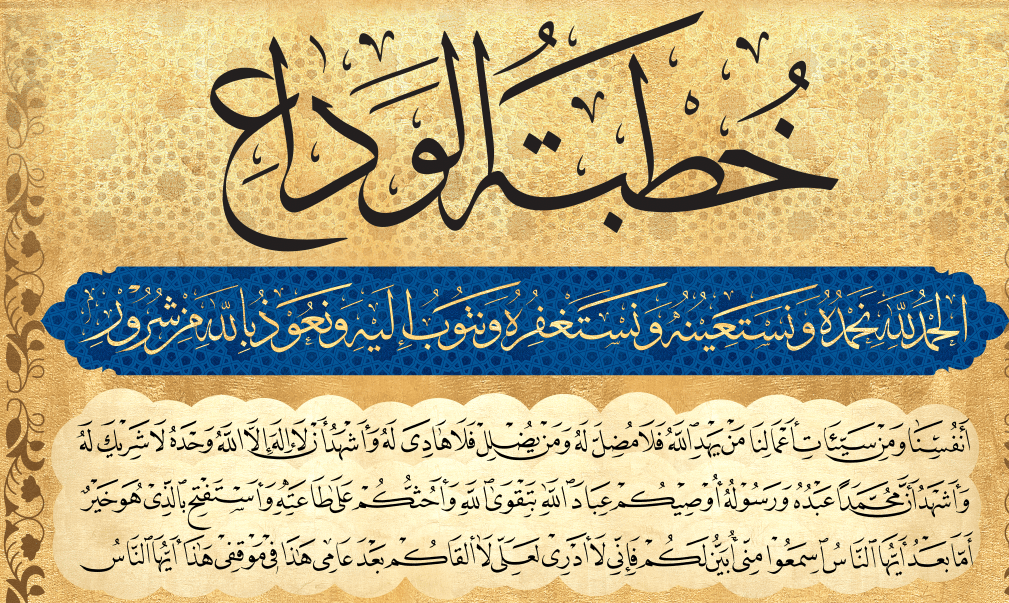 خُطْبَةُ الْوَدَاعِ
الْحَمْدُ لِلَّهِ نَحْمَدُهُ وَنَسْتَعِينُهُ وَنَسْتَغْفِرُهُ وَنَتُوبُ إِلَيْهِ وَنَعُوذُ بِاللَّهِ مِنْ شُرُورِ
أَنْفُسِنَا وَمِنْ سَيِّئَاتِ أَعْمَالِنَا مَنْ يَهْدِ اللَّهُ فَلَا مُضِلَّ لَهُ وَمَنْ يُضْلِلْ فَلَا هَادِيَ لَهُ وَأَشْهَدُ أَنْ لَا إِلَهَ إِلَّا اللَّهُ وَحْدَهُ لَا شَرِيكَ لَهُ
وَأَشْهَدُ أَنَّ مُحَمَّدًا عَبْدُهُ وَرَسُولُهُ أُوصِيكُمْ عِبَادَ اللَّهِ بِتَقْوَى اللَّهِ وَأَحُثُّكُمْ عَلَى طَاعَتِهِ وَأَسْتَفْتِحُ بِالَّذِي هُوَ خَيْرٌ
أَمَّا بَعْدُ أَيُّهَا النَّاسُ اسْمَعُوا مِنِّي أُبَيِّنْ لَكُمْ فَإِنِّي لَا أَدْرِي لَعَلِّي لَا أَلْقَاكُمْ بَعْدَ عَامِي هَذَا فِي مَوْقِفِي هَذَا أَيُّهَا النَّاسُ